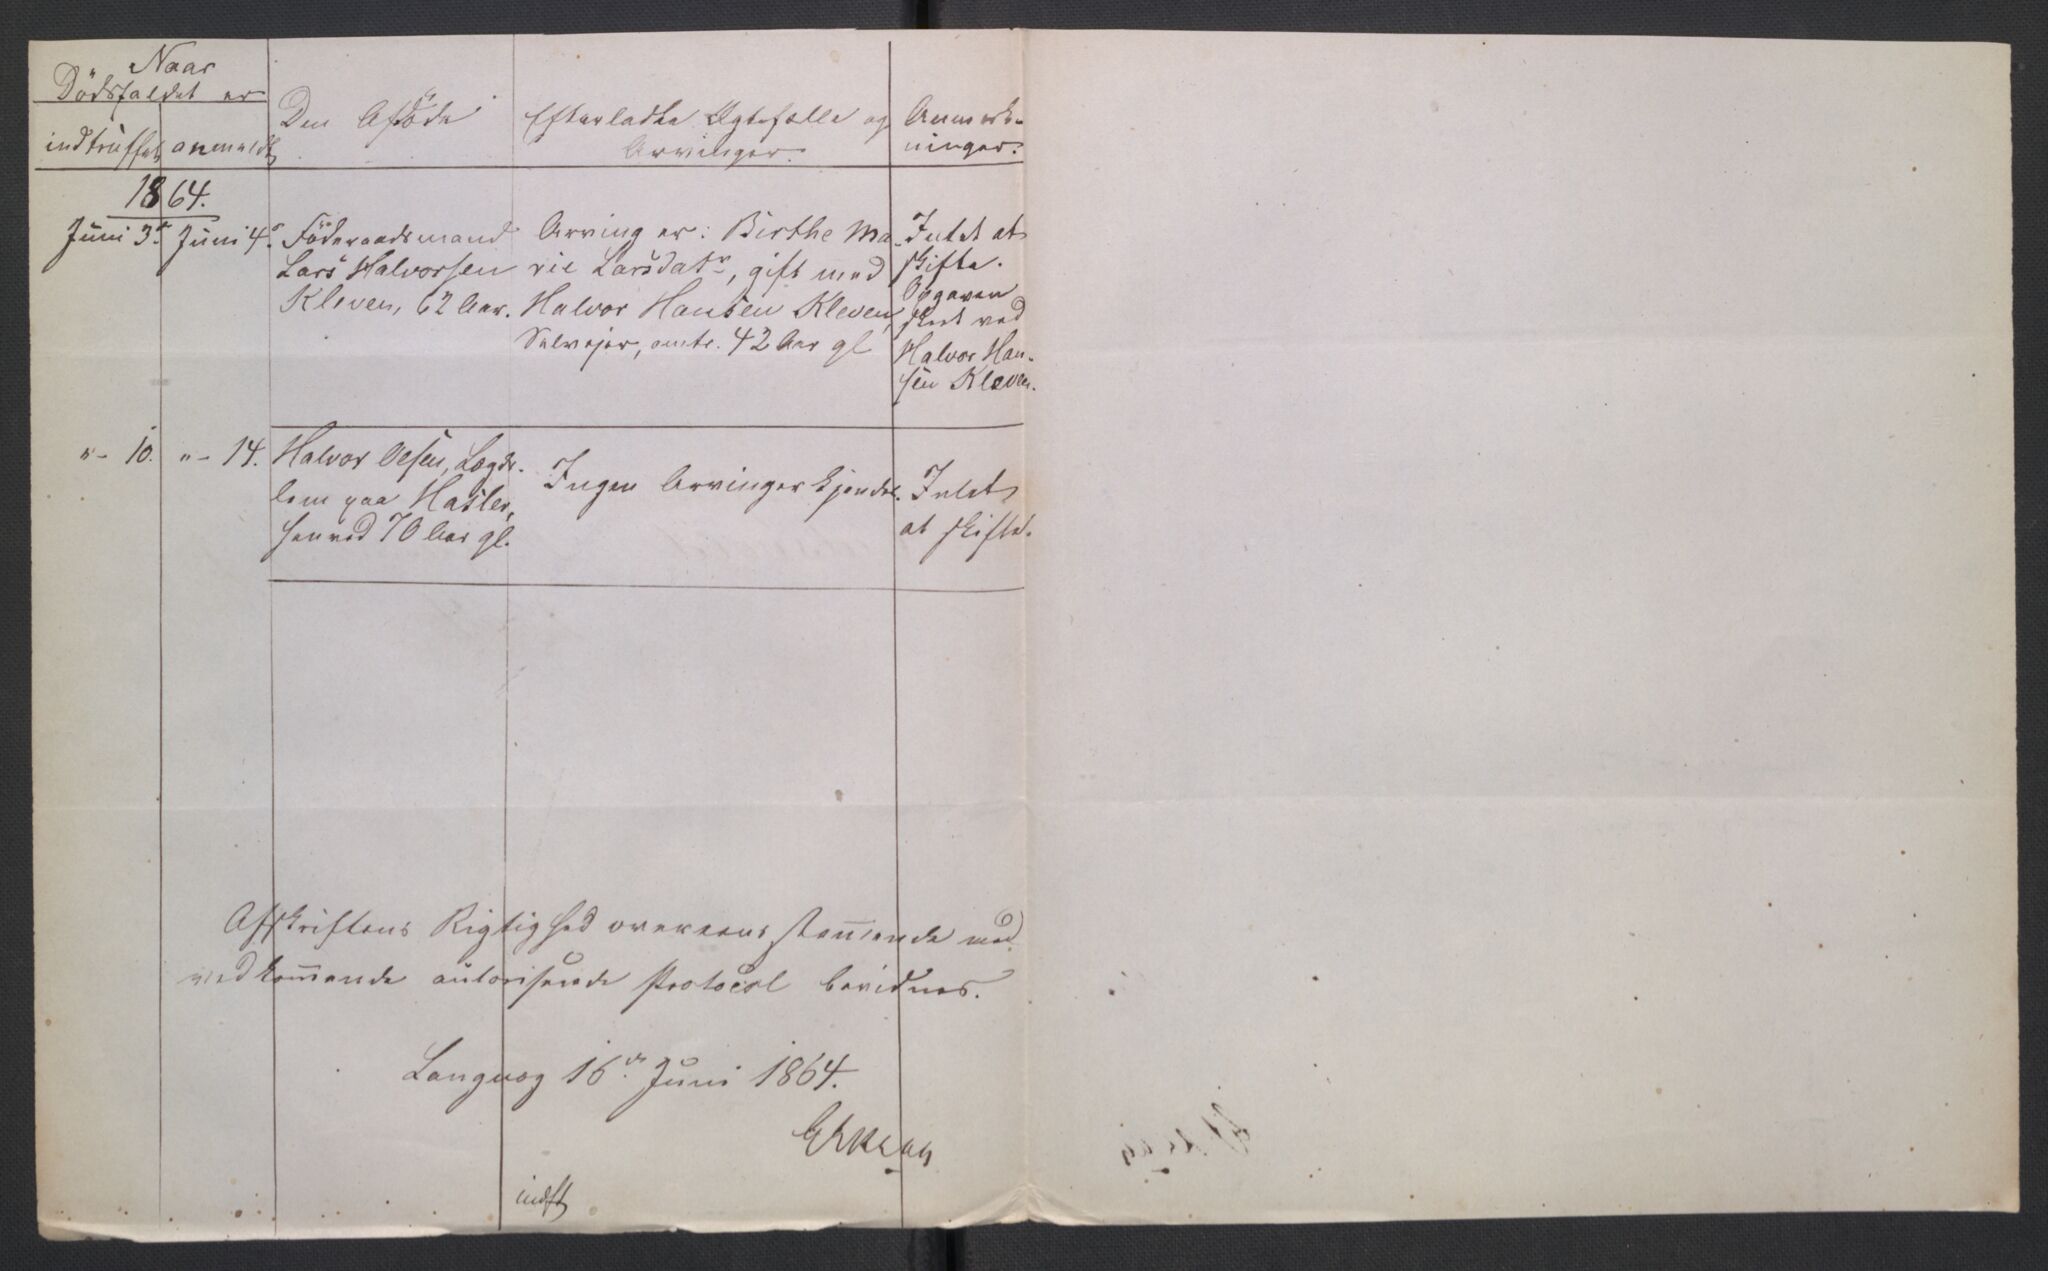 Naar
Dödsfaldet er
indtruffet anmeldt
Den Afdöde
Efterladte Ægtefælle og
Arvinger.
Anmærk-
ninger.
1864.
Juni 3d Juni 4d
Föderaadsmand
Lars Halvorsen
Kleven, 62 Aar.
Arving er: Birthe Ma-
rie Larsdatr, gift med
Halvor Hansen Kleven,
Selveier, omtr. 42 Aar gl
Intet at
skifte.
Opgaven
skeet ved
Halvor Han-
sen Kleven.
"- 10. "- 14.
Halvor Olsen, Lægds-
lem paa Hasler,
henved 70 Aar gl.
Ingen Arvinger kjendes.
Intet
at skifte.
Afskriftens Rigtighed overeensstem̄ende med
vedkom̄ende autoriserede Protocol bevidnes.
Langvog 16de Juni 1864.
indft